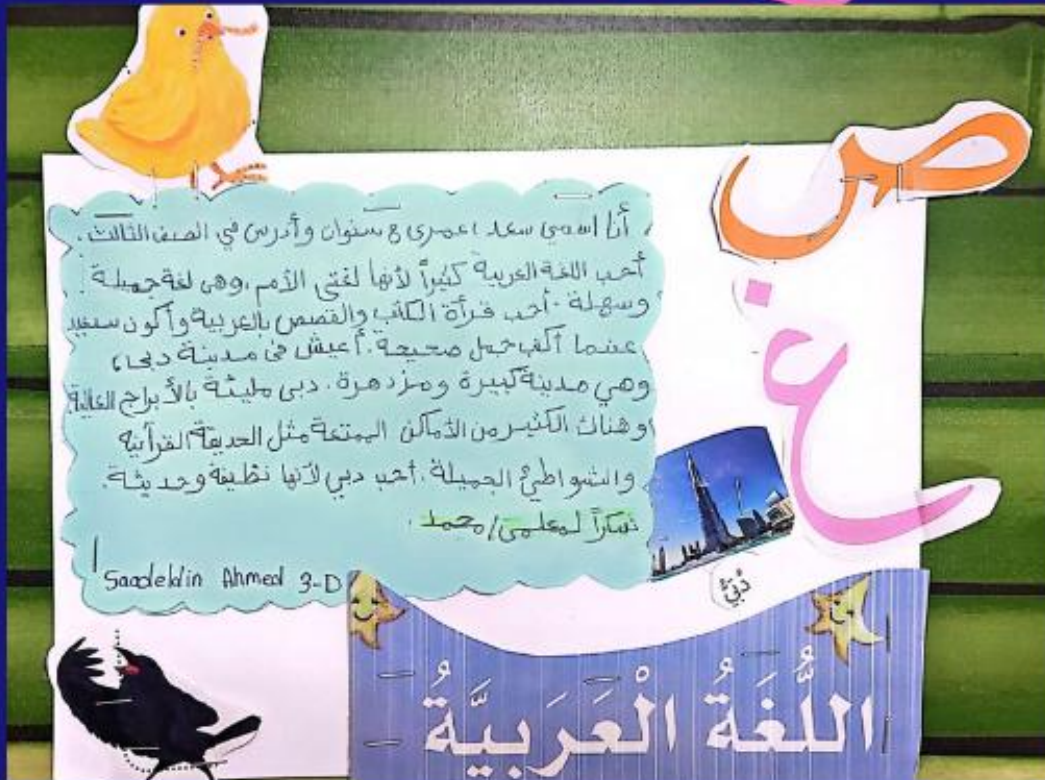 ص
غ
أنا اسمي سعد، عمري 8 سنوات وأدرس في الصف الثالث.
أحب اللغة العربية كثيراً لأنها لغتي الأم، وهي لغة جميلة
وسهلة. أحب قرأة الكتب والقصص بالعربية وأكون سعيد
عندما أكتب جمل صحيحة. أعيش في مدينة دبي،
وهي مدينة كبيرة ومزدهرة. دبي مليئة بالأبراج العالية
وهناك الكثير من الأماكن الممتعة مثل الحديقة القرآنية
والشواطئ الجميلة. أحب دبي لأنها نظيفة وحديثة.
شكراً لمعلمي/محمد.
Saadeldin Ahmed 3-D
دُبَيُّ
اللُّغَةُ الْعَرَبِيَّةُ